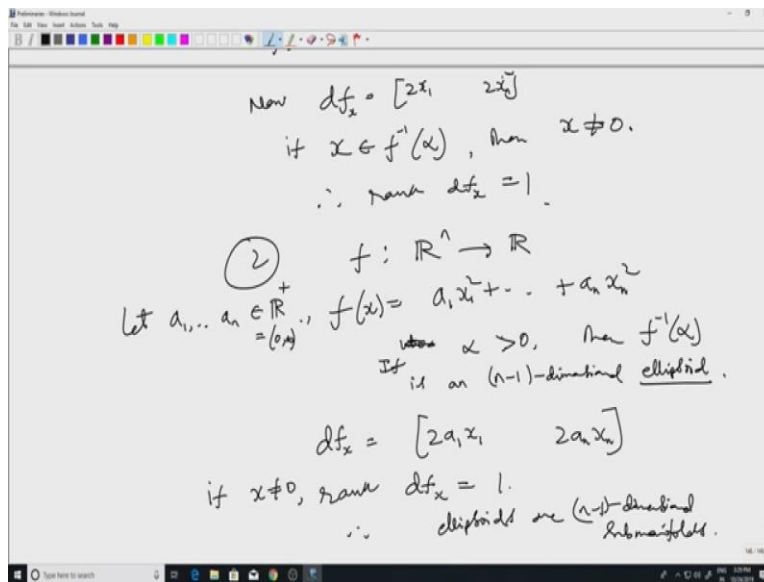 Preliminaries - Windows Journal
File Edit View Insert Actions Tools Help
B I
Now df_x = [2x_1 2x_n]
if x ∈ f^{-1}(α), then x ≠ 0.
∴ rank df_x = 1.
(2) f : ℝ^n → ℝ
Let a_1, .. a_n ∈ ℝ^+ = (0,∞)., f(x) = a_1 x_1^2 + - . + a_n x_n^2
If α > 0, then f^{-1}(α)
is an (n-1)-dimensional ellipsoid.
df_x = [2a_1 x_1 2a_n x_n]
if x ≠ 0, rank df_x = 1.
∴ ellipsoids are (n-1)-dimensional
submanifolds.
Type here to search
ENG 3:29 PM
IN 10/24/2019